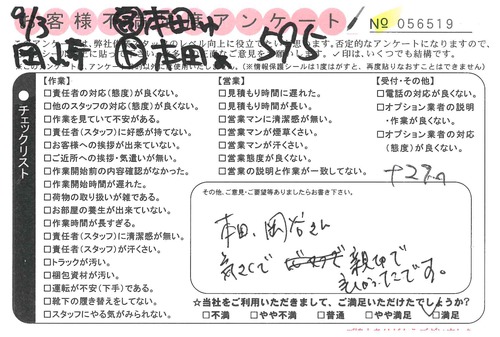 9/3
お客様不満足度アンケート
№ 056519
岡大寺
595
【作業】
□責任者の対応(態度)が良くない。
□他のスタッフの対応(態度)が良くない。
□作業を見ていて不安がある。
□責任者(スタッフ)に好感が持てない。
□お客様への挨拶が出来ていない。
□ご近所への挨拶・気遣いが無い。
□作業開始前の内容確認がなかった。
□作業開始時間が遅れた。
□荷物の取り扱いが雑である。
□お部屋の養生が出来ていない。
□作業時間が長すぎる。
□責任者(スタッフ)に清潔感が無い。
□責任者(スタッフ)が汗くさい。
□トラックが汚い。
□梱包資材が汚い。
□運転が不安(下手)である。
□靴下の履き替えをしてない。
□スタッフにやる気がみられない。
【営業】
□見積もり時間に遅れた。
□見積もり時間が長い。
□営業マンに清潔感が無い。
□営業マンが煙草くさい。
□営業マンが汗くさい。
□営業態度が良くない。
□営業の説明と作業が一致してない。
【受付・その他】
□電話の対応が良くない。
□オプション業者の説明
・作業が良くない。
□オプション業者の対応
(態度)が良くない。
●チェックリスト
その他、ご意見・ご要望等ありましたらお書き下さい。
本田、岡谷さん
気さくで 親切で
よかったです。
☆当社をご利用いただきまして、ご満足いただけたでしょうか?
□不満 □やや不満 □普通 □やや満足 □満足